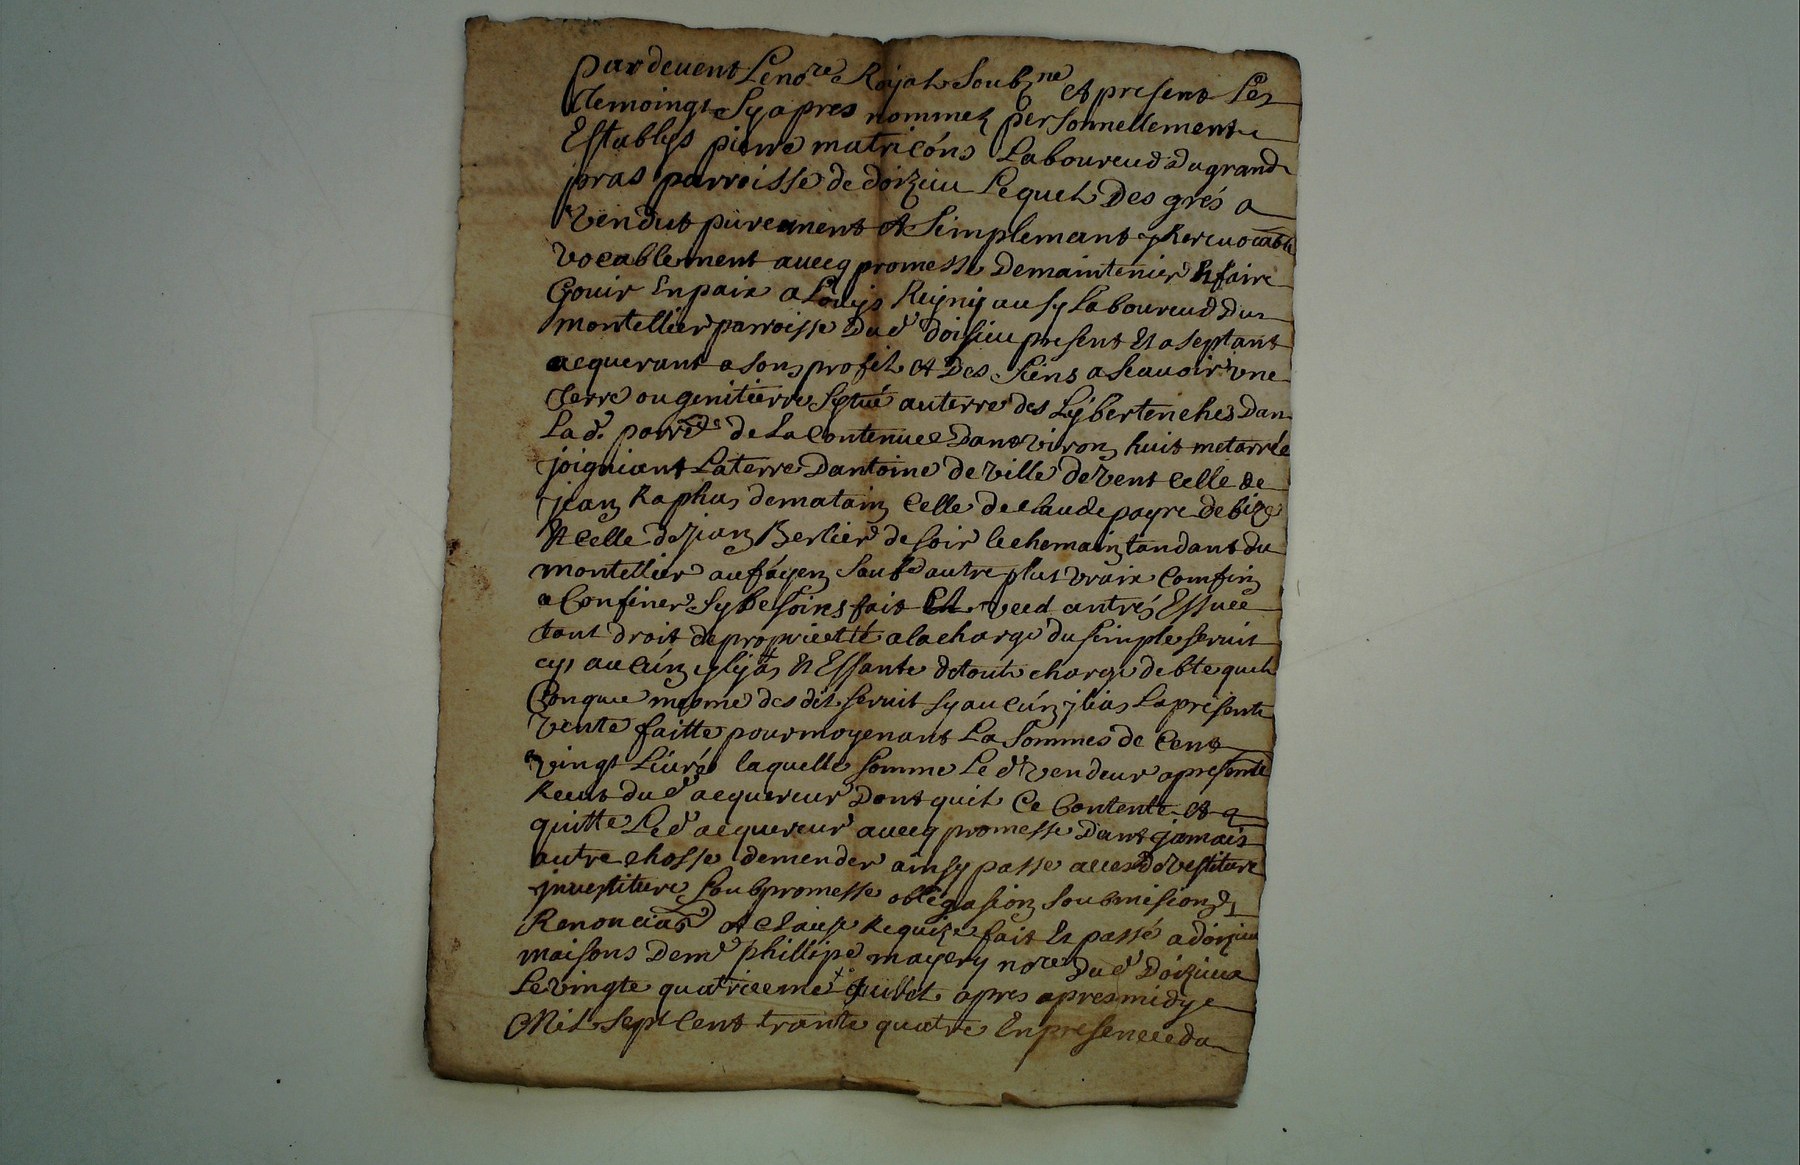 par devent Le no.re Royal Soub.ne et present Les
temoingt Sy apres nommez personnellement
Establys pierre matricóns Laboureud du grand
pras parroisse de doizieu Lequel Des grés a
vendut purement et Simplemant yRervocable
vocablement avecq promesse De maintenier Et faire
Gouir En paix a Louijs Reijnij ausy Laboureud Du
montellier parroisse Dud doisieu present Et aseptant
aequerant a sons profit et Des Siens a Scavoir vne
Terre ou genitierre Sytué au terre des Lijbertenches Dan
La d. parr.de de La Contenuee Dantviron huit metarrée
joigniant La terre Dantoine de ville de vent Celle de
jean Raphas de matain Celle de claude payre de bize
Et Celle de jean Berlier de soir le chemain tandant du
montellier au fáyen Saub autre plus vraix Comfin
a Confiner Sy besoins fait Et veed antrés Essuee
tout droit de proprieetté a la charge du simple servit
cy aucún y lij at Et Essante de toute charge debte quel
Conque mesme des dit servit sy aucún y lias La presente
vente faitte pour moyenant La Sommes de Cent
vingt Livrée laquelle somme Le d vendeur a presente
Receut dud aequereur Dont quil Ce Contente et q
quitte Led aequereur avecq promesse Dant jamais
autre chosse demender ainsy passe avec Devestiture
jnvestiture Soub promesse obligasion Soubmision
Renonciaõ et Clause Requize fait Et passé a doizieu
maisons De m.e phillipe mayery no.re Dud Doizieux
Le vingte quatrieeme Juillet apres apres midye
Mil Sept Cent trante quatre En presencee da